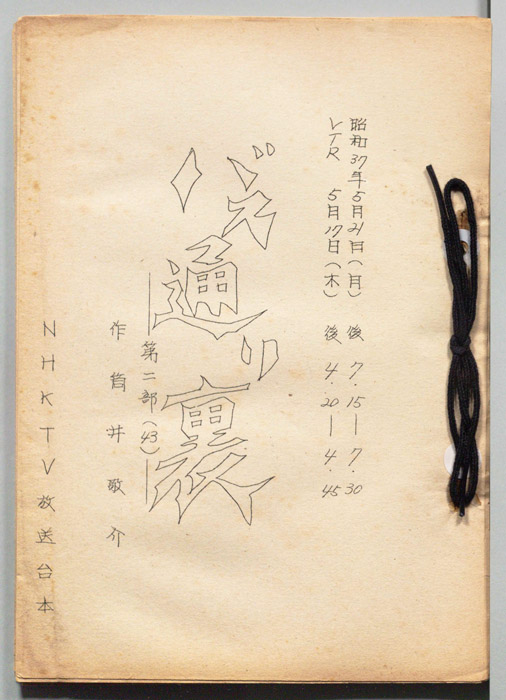 昭和37年5月21日(月) 後 7.15—7.30
VTR 5月17日(木) 後 4.20—4.45
バス通り裏
—第二部(43)—
作 筒井敬介
NHKTV放送台本